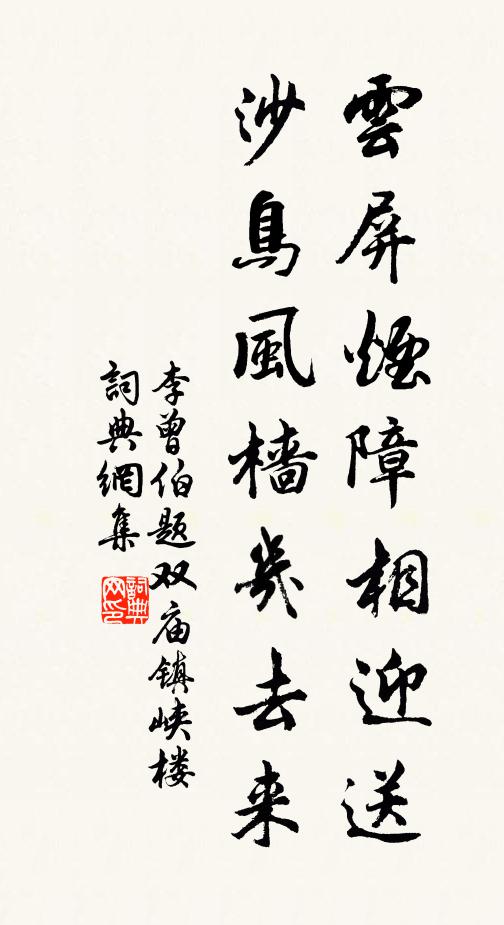 雲屏煙障相迎送
沙鳥風檣幾去来
李曾伯题双庙镇峡楼
詞典網集
詞典网印